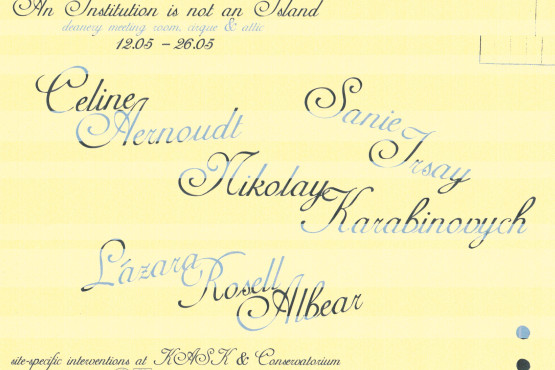 An Institution is not an Island
deanery meeting room, cirque & attic
12.05 – 26.05
Celine
Aernoudt
Sanie
Irsay
Nikolay
Karabinovych
Lázara
Rosell
Albear
site-specific interventions at KASK & Conservatorium